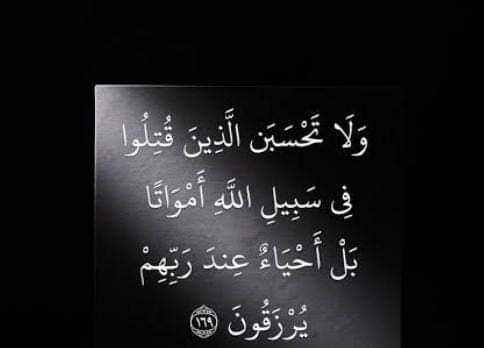 وَلَا تَحْسَبَن الَّذِينَ قُتِلُوا
فِى سَبِيلِ اللَّهِ أَمْوَاتًا
بَلْ أَحْيَاءٌ عِندَ رَبِّهِمْ
يُرْزَقُونَ ١٦٩